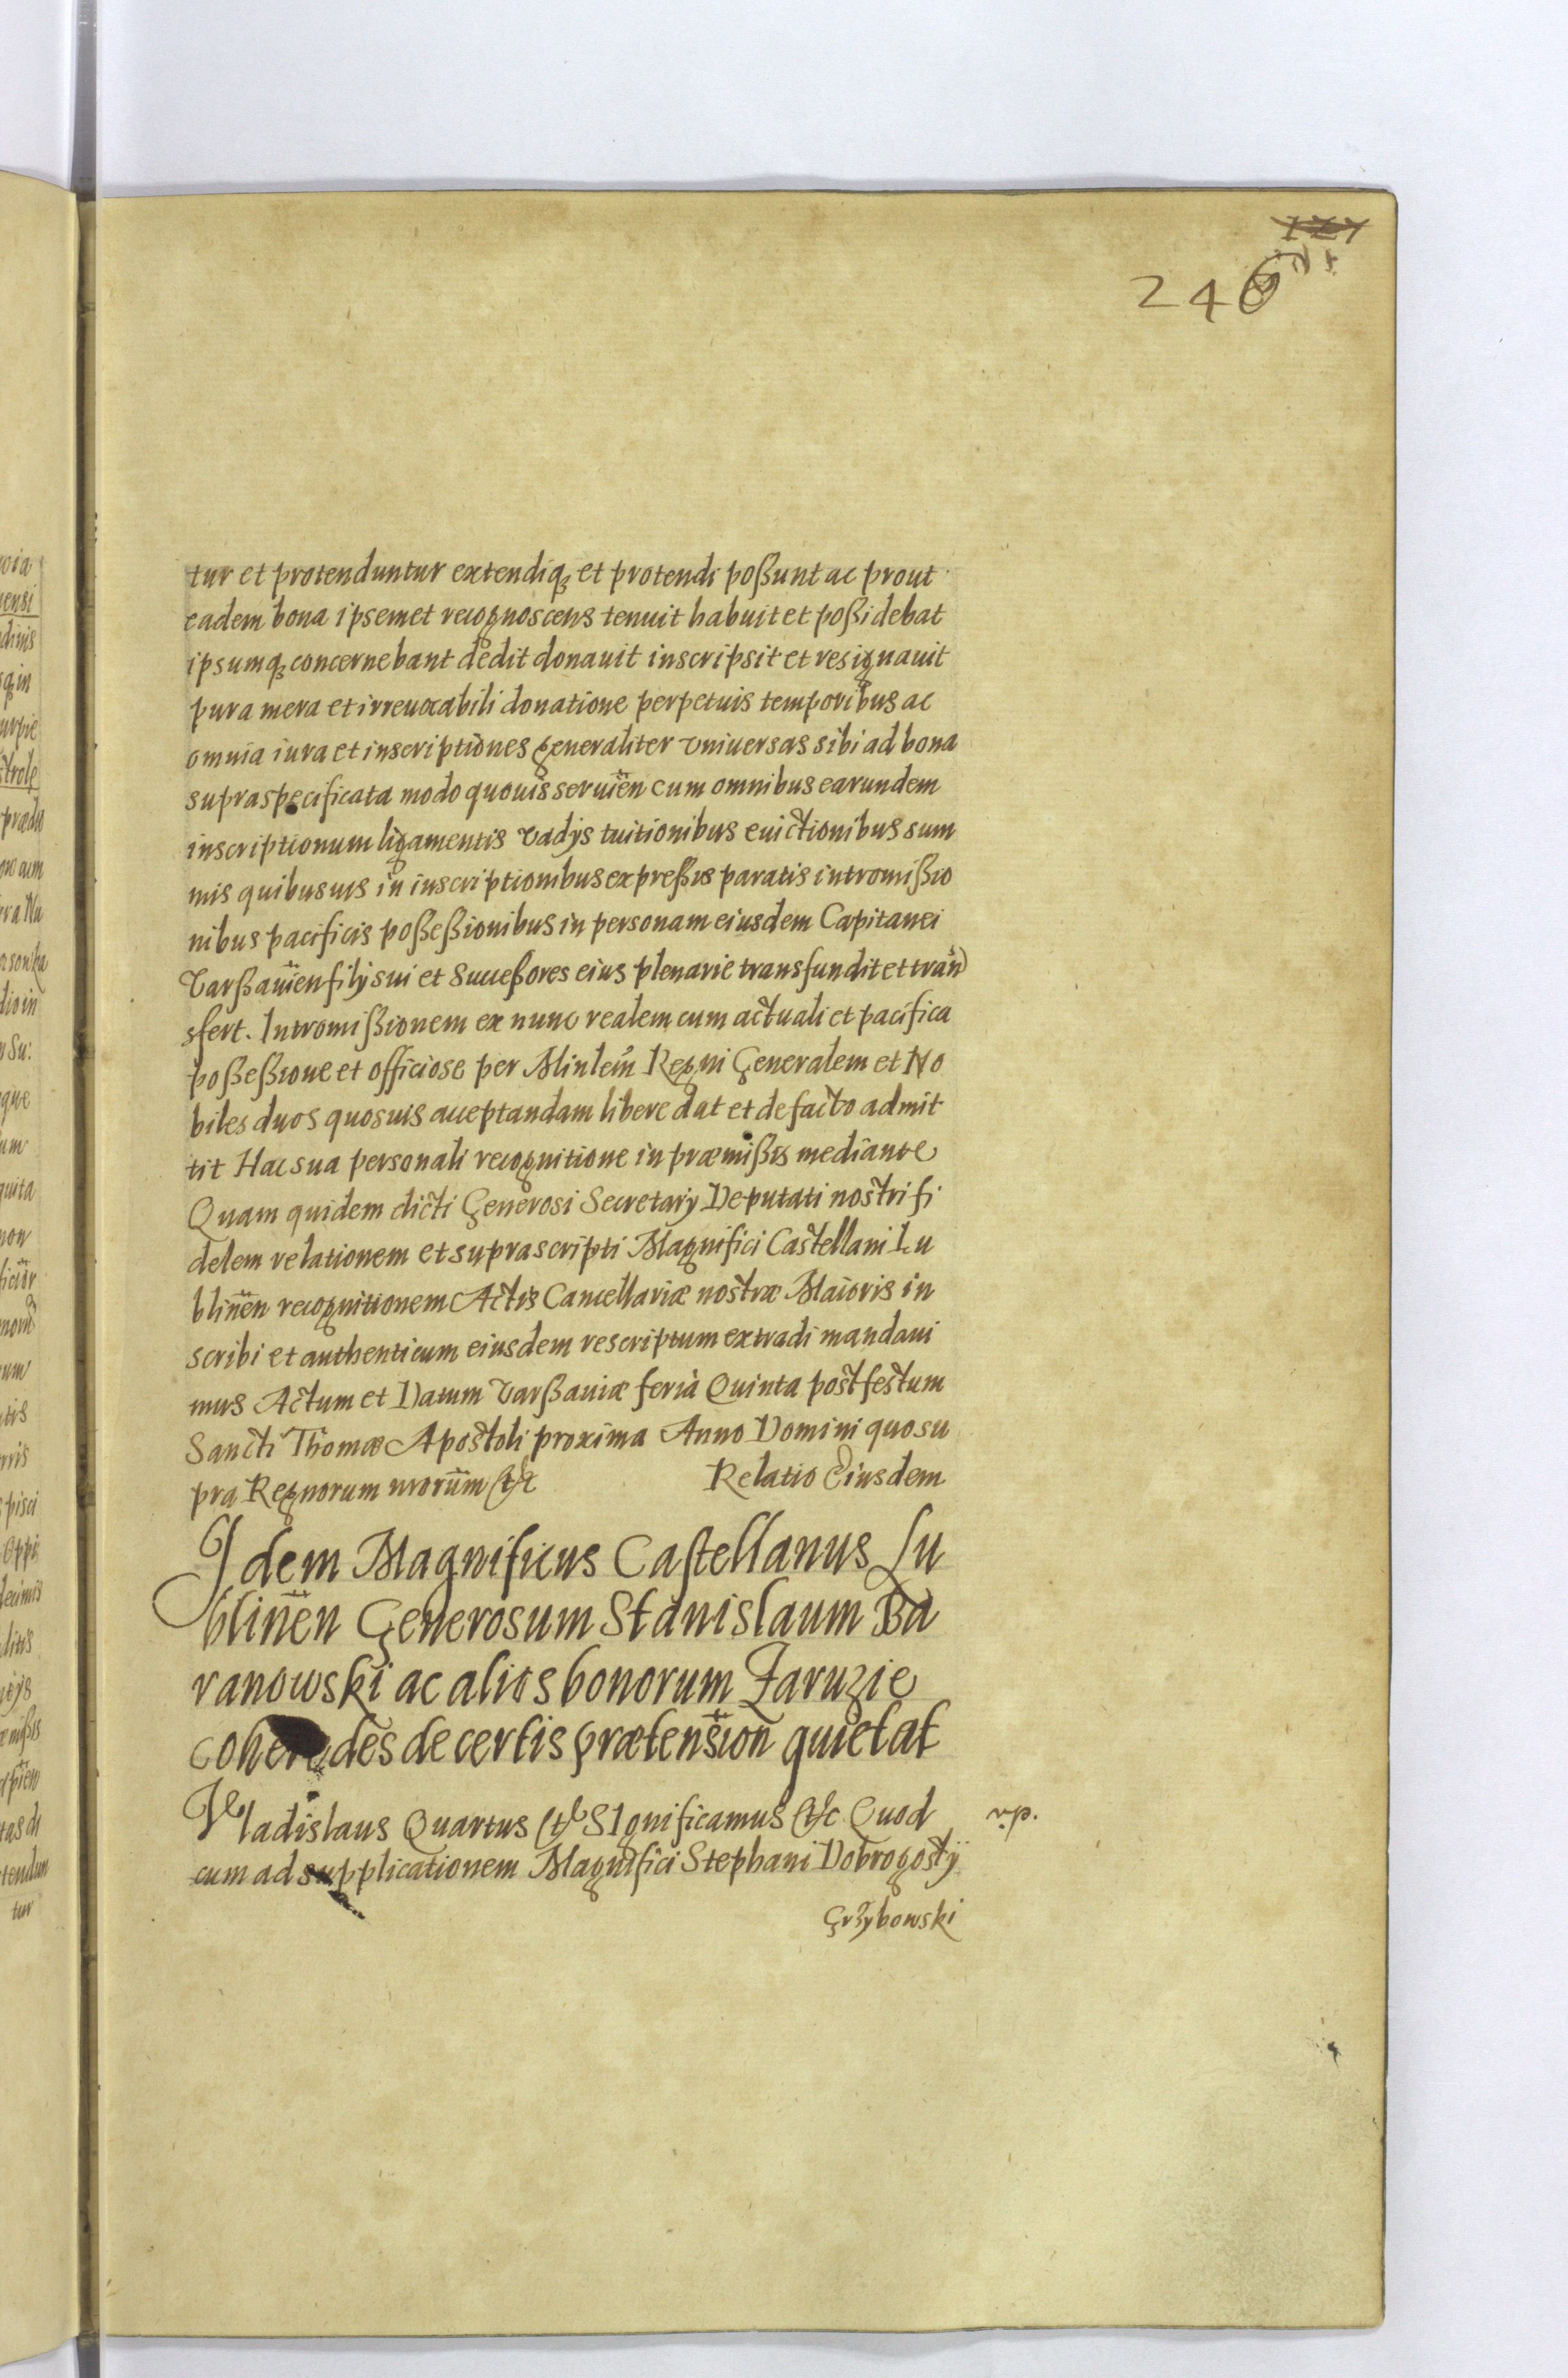 246
tur et protenduntur extendiq₃ et protendi poßunt ac prout
eadem bona ipsemet recognoscens tenuit habuit et poßidebat
ipsumq₃ concernebant dedit donauit inscripsit et resignauit
pura mera et irreuocabili donatione perpetuis temporibus ac
omnia iura et inscriptiones generaliter vniuersas sibi ad bona
supraspecificata modo quouis seruien̄ cum omnibus earundem
inscriptionum ligamentis vadijs tuitionibus euictionibus sum
mis quibusuis in inscriptionibus expreßis paratis intromißio
nibus pacificis poßeßionibus in personam eiusdem Capitanei
Varßauien̄ filij sui et Succeßores eius plenarie transfundit et tran
sfert. Intromißionem ex nunc realem cum actuali et pacifica
poßeßione et officiose per Minlem̄ Regni Generalem et No
biles duos quosuis acceptandam libere dat et de facto admit
tit Hac sua personali recognitione in præmißis mediante
Quam quidem dicti Generosi Secretarij Deputati nostri fi
delem relationem et suprascripti Magnifici Castellani Lu
blinen̄ recognitionem Actis Cancellariæ nostræ Maioris in
scribi et authenticum eiusdem rescriptum extradi mandaui
mus Actum et Datum Varßauiæ feria Quinta post festum
Sancti Thomæ Apostoli proxima Anno Domini quo su
pra Regnorum nrorum̄ &c Relatio Eiusdem
Idem Magnificus Castellanus Lu
blinen̄ Generosum Stanislaum Ba
ranowski ac alios bonorum Zaruzie
coheredes de certis prætension̄ quietat
Vladislaus Quartus &c Significamus &c Quod
cum ad supplicationem Magnifici Stephani Dobrogostÿ
Grzybowski